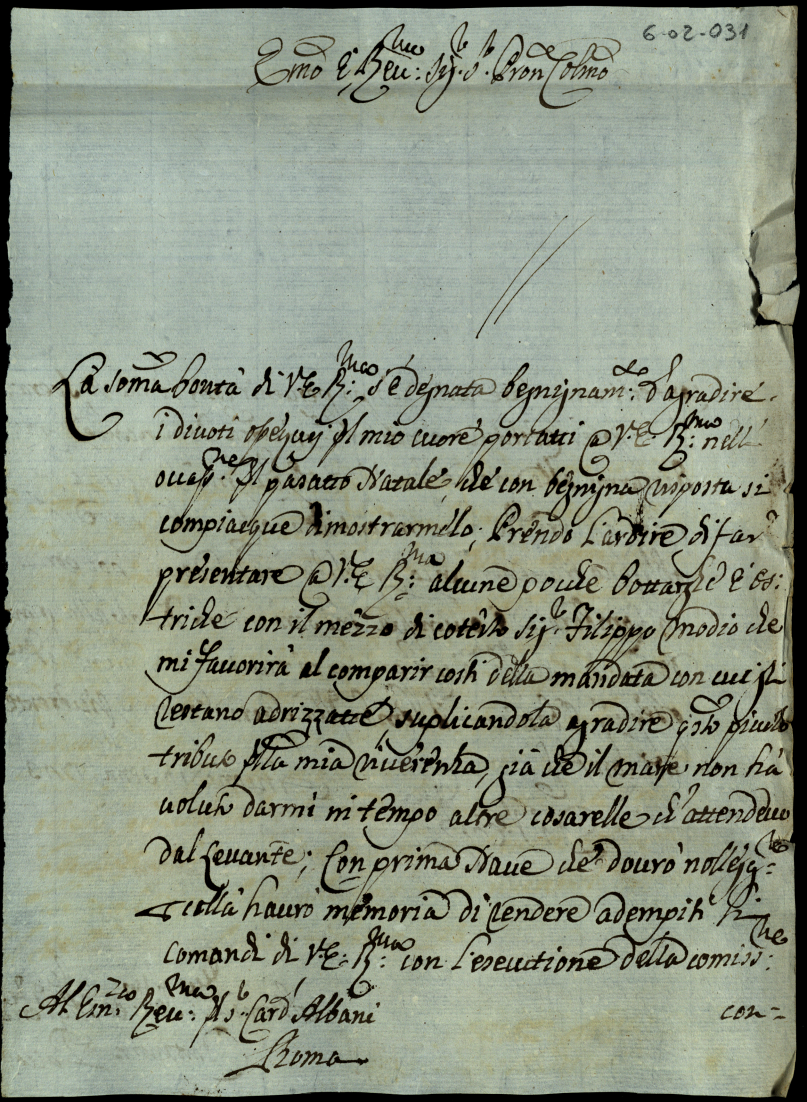 6-02-031
Emo e Reu:mo Sig.r S.r Pron Colmo
La soma bontà di V. E. R:ma s'è degnata begnignam:te d'agradire
i diuoti osequij del mio cuore portatti a V. E. R:ma nell
occas:ne del pasatto Natale, che con begnigna risposta si
compiacque dimostrarmelo; Prendo l'ardire di far
presentare a V. E. R:ma alcune poche bottarghe e os:
triche con il mezzo di cotesto Sig.r Filippo Modio che
mi fauorirà al comparir costi della mandata con cui li
restano adrizzatte, suplicandola agradire q.sto picciolo
tributo della mia riuerenza, già che il mare non hà
uoluto darmi in tempo altre cosarelle ch'attendeuo
dal Leuante; Con prima Naue che dourò nollegg:re
colla haurò memoria di rendere adempiti li
comandi di V. E. R:ma con l'esecuttione della comiss:ne
con=
Al Em:mo Reu:mo S.r Card.l Albani
Roma